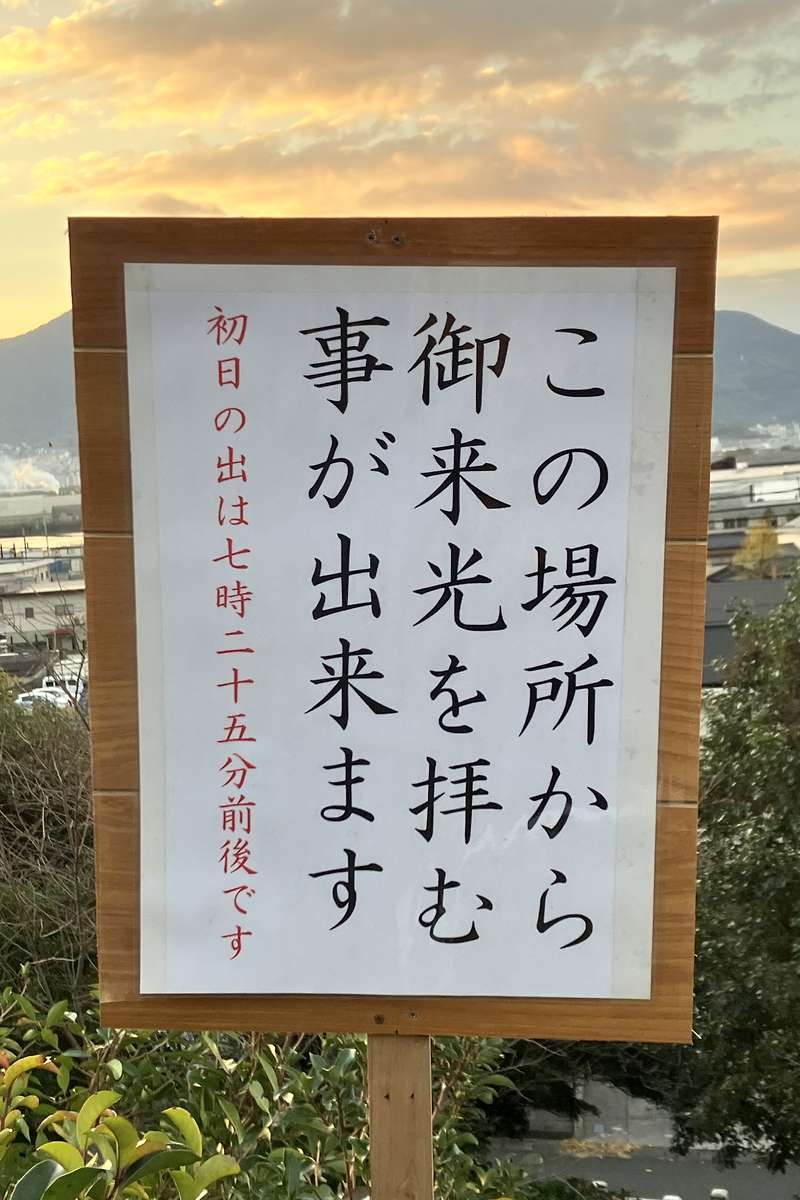 この場所から
御来光を拝む
事が出来ます
初日の出は七時二十五分前後です